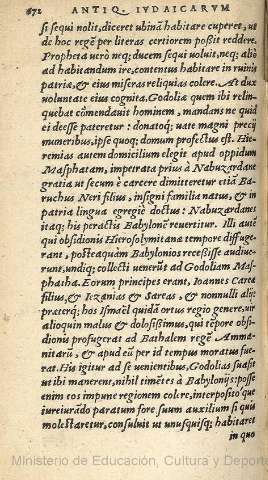 672 ANTIQ. IVDAICARVM
si sequi nolit, diceret ubinã habitare cuperet, ut
de hoc regẽ per literas certiorem possit reddere.
Propheta verò neq; ducem sequi uoluit, neq; aliò
ad habitandum ire, contentus habitare in ruinis
patriæ, & eius miseras reliquias colere. At dux
voluntate eius cognita, Godoliæ quem ibi relin-
quebat cõmendauit hominem, mandans ne quid
ei deesse pateretur: donatoq; uate magni precij
muneribus, ipse quoq; domum profectus est. Hie-
remias autem domicilium elegit apud oppidum
Masphatam, impetrata prius à Nabuzardane
gratia ut secum è carcere dimitteretur etiã Ba-
ruchus Neri filius, insigni familia natus, & in
patria lingua egregiè doctus: Nabuzardanes
itaq; his peractis Babylonẽ reuertitur. Illi autẽ
qui obsidionis Hierosolymitanæ tempore diffuge-
rant, posteaquàm Babylonios recessisse audiue-
runt, undiq; collecti uenerũt ad Godoliam Mas-
phatha. Eorum principes erant, Ioannes Careæ
filius, & Iezanias & Sareas, & nonnulli alij:
prætereq; hos Ismaël quidã ortus regio genere, uir
alioquin malus & dolosissimus, qui tẽpore obsi-
dionis profugerat ad Bathalem regẽ Amma-
nitarũ, & apud eũ per id tempus moratus fue-
rat. His igitur ad se uenientibus, Godolias suasit
ut ibi manerent, nihil timẽtes à Babylonijs: posse
enim eos impune regionem colere, interpositoq́ue
iureiurãdo paratum fore suum auxilium si quis
molestaretur, consuluit ut unusquisq; habitaret
in quo
Ministerio de Educación, Cultura y Deporte